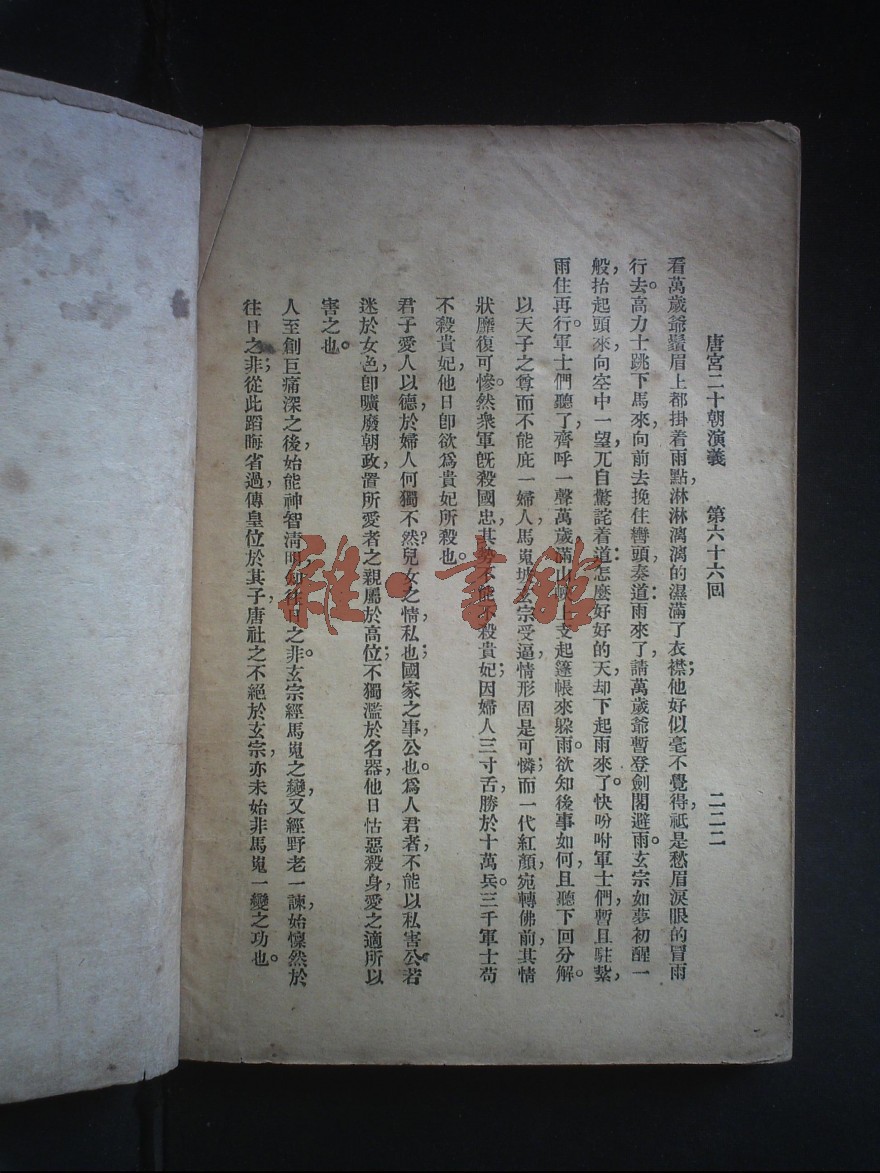 唐宮二十朝演義 第六十六回 二二二
看萬歲爺鬚眉上都掛着雨點，淋淋漓漓的濕滿了衣襟；他好似毫不覺得，祇是愁眉淚眼的冒雨
行去。高力士跳下馬來，向前去挽住轡頭，奏道：雨來了，請萬歲爺暫登劍閣避雨。玄宗如夢初醒一
般，抬起頭來，向空中一望，兀自驚詫着道：怎麼好好的天，却下起雨來了。快吩咐軍士們，暫且駐紮，
雨住再行。軍士們聽了，齊呼一聲萬歲，滿山上支起篷帳來躲雨。欲知後事如何，且聽下回分解。
以天子之尊而不能庇一婦人，馬嵬坡玄宗受逼，情形固是可憐；而一代紅顏，宛轉佛前，其情
狀靡復可慘。然衆軍旣殺國忠，其勢不能不殺貴妃；因婦人三寸舌，勝於十萬兵。三千軍士苟
不殺貴妃，他日卽欲爲貴妃所殺也。
君子愛人以德，於婦人何獨不然？兒女之情，私也；國家之事，公也。爲人君者，不能以私害公。若
迷於女色，卽曠廢朝政，置所愛者之親屬於高位；不獨濫於名器，他日怙惡殺身，愛之適所以
害之也。
人至創巨痛深之後，始能神智淸明，知往日之非。玄宗經馬嵬之變，又經野老一諫，始懍然於
往日之非；從此蹈晦省過，傳皇位於其子，唐社之不絕於玄宗，亦未始非馬嵬一變之功也。
雜·書館